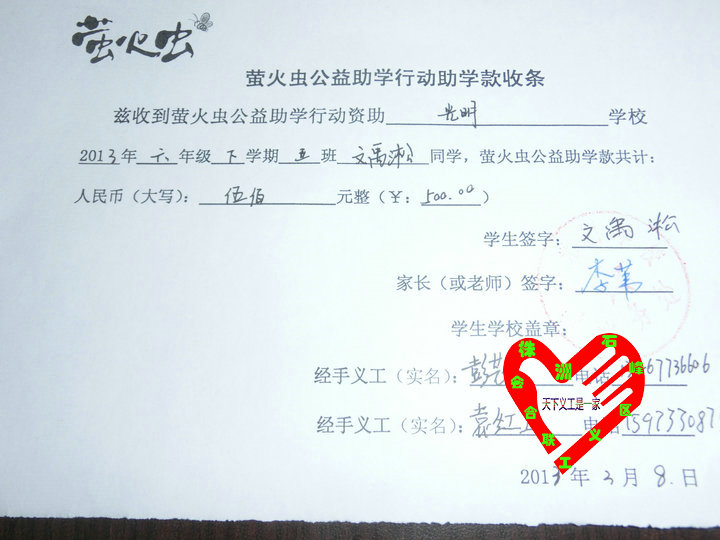 萤火虫
萤火虫公益助学行动助学款收条
兹收到萤火虫公益助学行动资助 光明 学校
2013年 六 年级 下 学期 五 班 文禹淞 同学，萤火虫公益助学款共计：
人民币（大写）： 伍佰 元整（￥： 500.00 ）
学生签字： 文禹淞
家长（或老师）签字： 李苇
学生学校盖章：
经手义工（实名）： 彭 电话 67736606
经手义工（实名）： 袁红 电话 159733087
株洲石峰区义工联合会
天下义工是一家
2013年3月8日